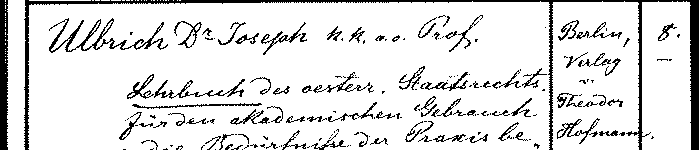 Ulbrich Dr Joseph k. k. a. o. Prof.
Lehrbuch des oesterr. Staatsrechts.
für den akademischen Gebrauch
die Bedürfniße der Praxis be„
Berlin,
Verlag
v.
Theodor
Hofmann.
8.
—